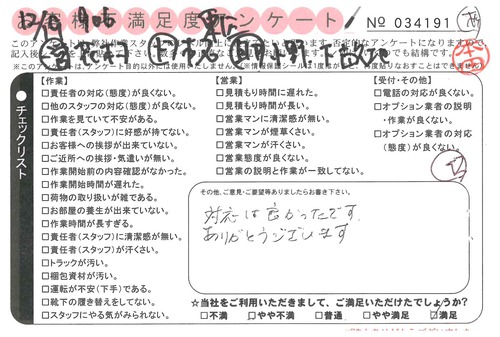 お客様満足度アンケート
No 034191
【作業】
□責任者の対応(態度)が良くない。
□他のスタッフの対応(態度)が良くない。
□作業を見ていて不安がある。
□責任者(スタッフ)に好感が持てない。
□お客様への挨拶が出来ていない。
□ご近所への挨拶・気遣いが無い。
□作業開始前の内容確認がなかった。
□作業開始時間が遅れた。
□荷物の取り扱いが雑である。
□お部屋の養生が出来ていない。
□作業時間が長すぎる。
□責任者(スタッフ)に清潔感が無い。
□責任者(スタッフ)が汗くさい。
□トラックが汚い。
□梱包資材が汚い。
□運転が不安(下手)である。
□靴下の履き替えをしてない。
□スタッフにやる気がみられない。
【営業】
□見積もり時間に遅れた。
□見積もり時間が長い。
□営業マンに清潔感が無い。
□営業マンが煙草くさい。
□営業マンが汗くさい。
□営業態度が良くない。
□営業の説明と作業が一致してない。
【受付・その他】
□電話の対応が良くない。
□オプション業者の説明
・作業が良くない。
□オプション業者の対応
(態度)が良くない。
チェックリスト
その他、ご意見・ご要望等ありましたらお書き下さい。
対応は良かったです。
ありがとうございます
☆当社をご利用いただきまして、ご満足いただけたでしょうか?
□不満 □やや不満 □普通 □やや満足 ☑満足